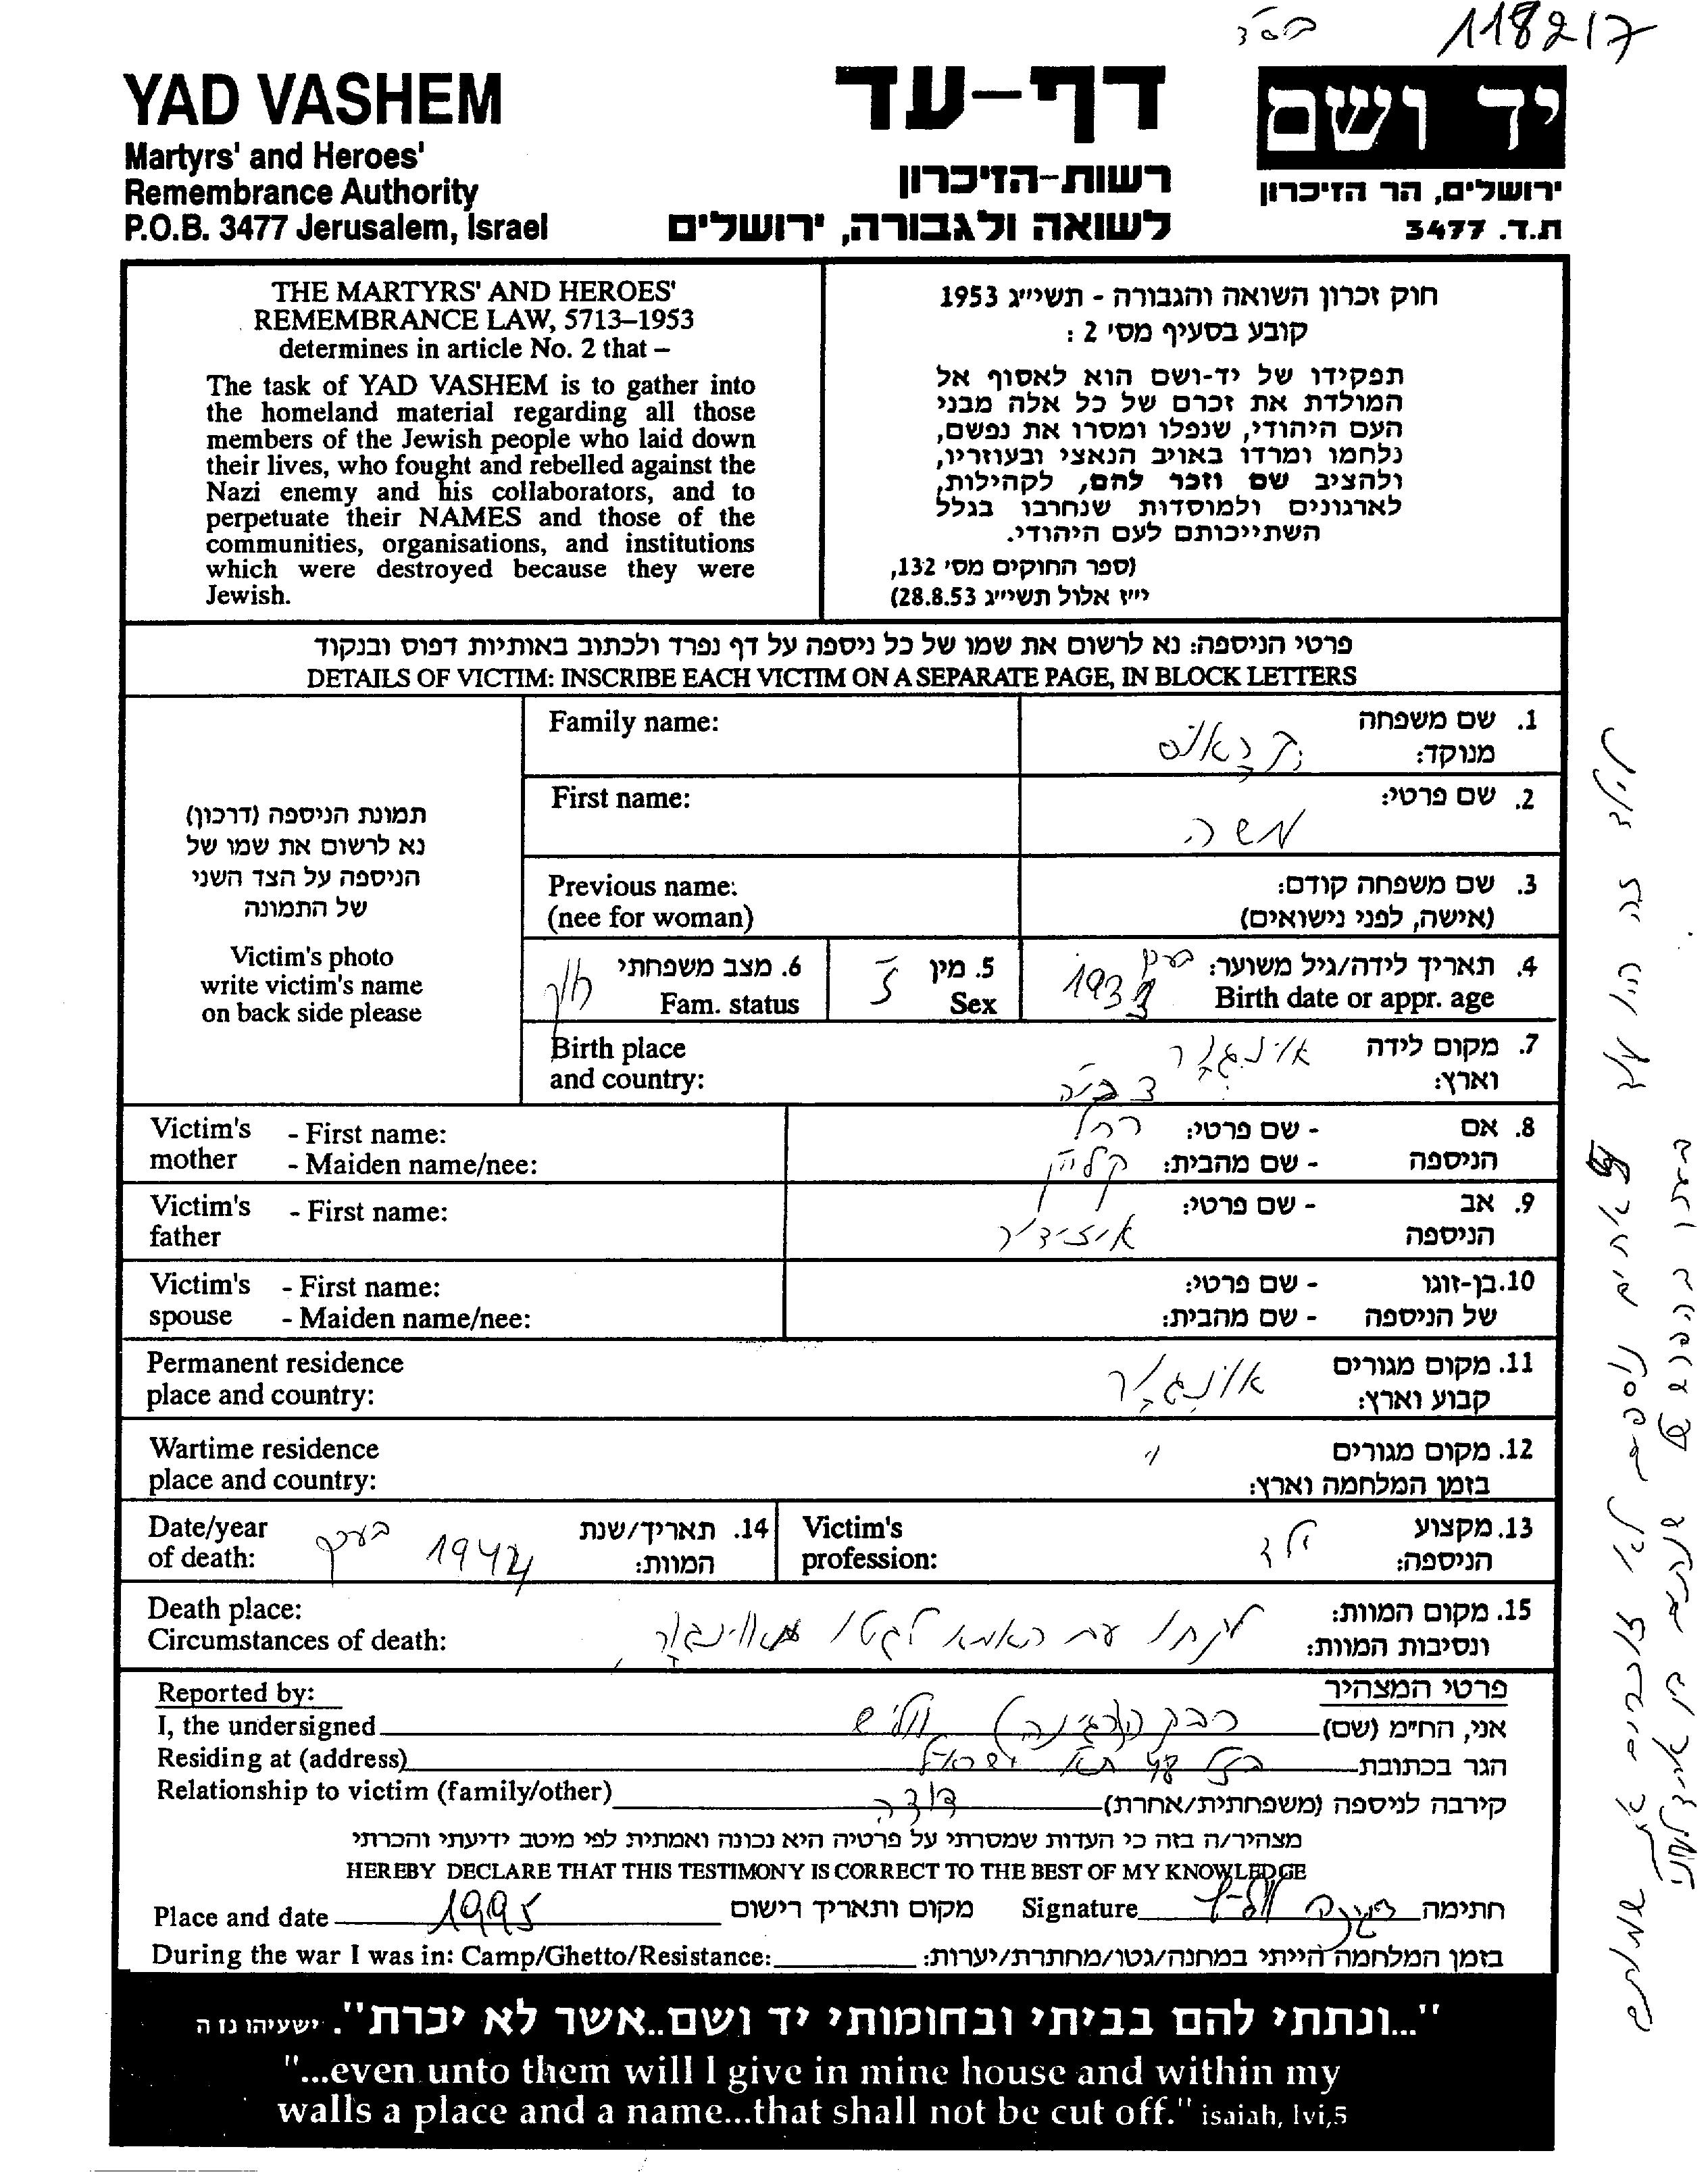 בס"ד
118217
YAD VASHEM
Martyrs' and Heroes'
Remembrance Authority
P.O.B. 3477 Jerusalem, Israel
דף-עד
רשות-הזיכרון
לשואה ולגבורה, ירושלים
יד ושם
ירושלים, הר הזיכרון
ת.ד. 3477
THE MARTYRS' AND HEROES'
REMEMBRANCE LAW, 5713–1953
determines in article No. 2 that –
The task of YAD VASHEM is to gather into
the homeland material regarding all those
members of the Jewish people who laid down
their lives, who fought and rebelled against the
Nazi enemy and his collaborators, and to
perpetuate their NAMES and those of the
communities, organisations, and institutions
which were destroyed because they were
Jewish.
חוק זכרון השואה והגבורה - תשי״ג 1953
קובע בסעיף מס׳ 2 :
תפקידו של יד-ושם הוא לאסוף אל
המולדת את זכרם של כל אלה מבני
העם היהודי, שנפלו ומסרו את נפשם,
נלחמו ומרדו באויב הנאצי ובעוזריו,
ולהציב שם וזכר להם, לקהילות,
לארגונים ולמוסדות שנחרבו בגלל
השתייכותם לעם היהודי.
(ספר החוקים מס׳ 132,
י״ז אלול תשי״ג 28.8.53)
פרטי הניספה: נא לרשום את שמו של כל ניספה על דף נפרד ולכתוב באותיות דפוס ובנקוד
DETAILS OF VICTIM: INSCRIBE EACH VICTIM ON A SEPARATE PAGE, IN BLOCK LETTERS
תמונת הניספה (דרכון)
נא לרשום את שמו של
הניספה על הצד השני
של התמונה
Victim's photo
write victim's name
on back side please
Family name:
1. שם משפחה
מנוקד:
First name:
2. שם פרטי:
משה
Previous name:
(nee for woman)
3. שם משפחה קודם:
(אישה, לפני נישואים)
4. תאריך לידה/גיל משוער: בערך
Birth date or appr. age
5. מין ז
Sex
6. מצב משפחתי
Fam. status
Birth place
and country:
7. מקום לידה
וארץ:
אונגבר
Victim's mother - First name:
- Maiden name/nee:
8. אם הניספה - שם פרטי: רחל
- שם מהבית: קליין
Victim's father - First name:
9. אב הניספה - שם פרטי:
איזידור
Victim's spouse - First name:
- Maiden name/nee:
10. בן-זוגו של הניספה - שם פרטי:
- שם מהבית:
Permanent residence
place and country:
11. מקום מגורים
קבוע וארץ:
אונגבר
Wartime residence
place and country:
12. מקום מגורים
בזמן המלחמה וארץ:
"
Date/year
of death:
14. תאריך/שנת
המוות:
1944 בערך
Victim's
profession:
13. מקצוע
הניספה:
ילד
Death place:
Circumstances of death:
15. מקום המוות:
ונסיבות המוות:
לקחו עם האמא לגטו
Reported by:
פרטי המצהיר
I, the undersigned
אני, הח״מ (שם)
רבקה
Residing at (address)
הגר בכתובת
ישראל
Relationship to victim (family/other)
קירבה לניספה (משפחתית/אחרת)
דודה
מצהיר/ה בזה כי העדות שמסרתי על פרטיה היא נכונה ואמתית לפי מיטב ידיעתי והכרתי
HEREBY DECLARE THAT THIS TESTIMONY IS CORRECT TO THE BEST OF MY KNOWLEDGE
Place and date
1995
מקום ותאריך רישום
Signature
חתימה
During the war I was in: Camp/Ghetto/Resistance:
בזמן המלחמה הייתי במחנה/גטו/מחתרת/יערות:
"...ונתתי להם בביתי ובחומותי יד ושם..אשר לא יכרת". ישעיהו נו ה
"...even unto them will I give in mine house and within my
walls a place and a name...that shall not be cut off." isaiah, lvi,5
לילד זה היו עוד אחים נוספים לא זוכרים את שמותם